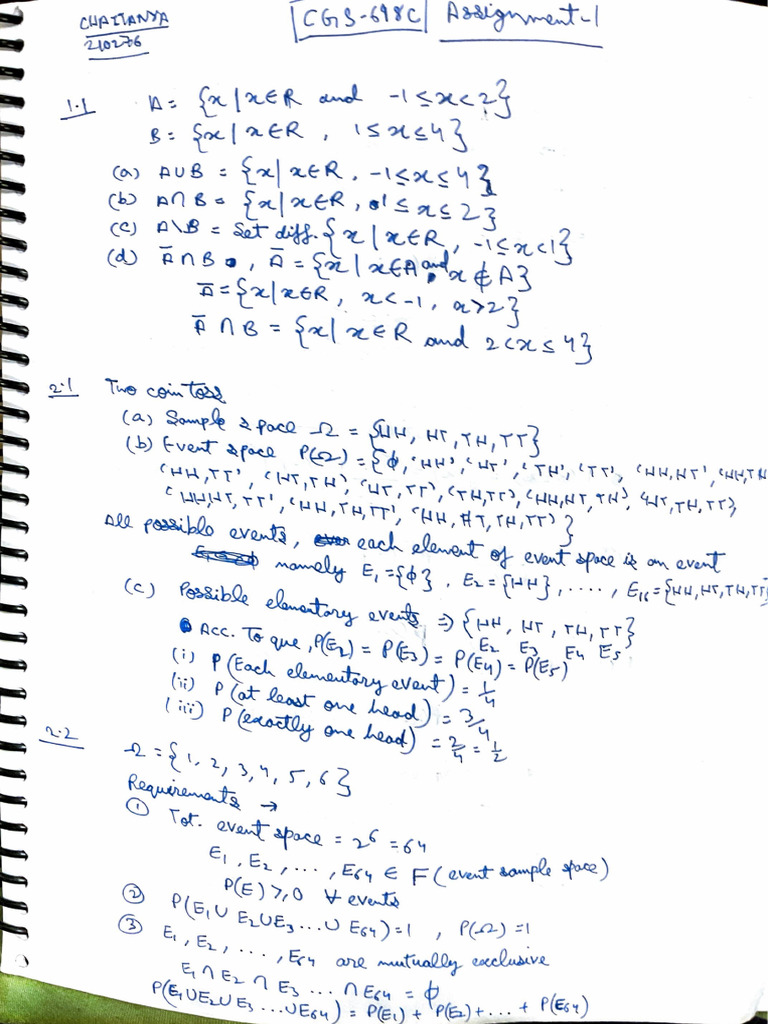 CHAITANYA
210276
CGS-698C Assignment-1
1.1 A = {x | x∈R and -1≤x<2}
B = {x | x∈R , 1≤x≤4}
(a) A∪B = {x | x∈R , -1≤x≤4}
(b) A∩B = {x | x∈R , 1≤x≤2}
(c) A\B = Set diff. {x | x∈R , -1≤x<1}
(d) Ā∩B , Ā = {x | x∈A and x∉A}
Ā = {x | x∈R , x<-1, x>2}
Ā∩B = {x | x∈R and 2<x≤4}
2.1 Two coin toss
(a) Sample space Ω = {HH, HT, TH, TT}
(b) Event space P(Ω) = {ϕ, 'HH', 'HT', 'TH', 'TT', 'HH,HT', 'HH,TH
'HH,TT', 'HT,TH', 'HT,TT', 'TH,TT', 'HH,HT,TH', 'HT,TH,TT',
'HH,HT,TT', 'HH,TH,TT', 'HH,HT,TH,TT' }
All possible events, each element of event space is an event
namely E₁ = {ϕ} , E₂ = {HH}, ...., E₁₆ = {HH,HT,TH,TT}
(c) Possible elementary events ⇒ {HH, HT, TH, TT}
E₂ E₃ E₄ E₅
Acc. To que, P(E₂) = P(E₃) = P(E₄) = P(E₅)
(i) P(Each elementary event) = 1/4
(ii) P(at least one head) = 3/4
(iii) P(exactly one head) = 2/4 = 1/2
2.2 Ω = {1, 2, 3, 4, 5, 6}
Requirements →
① Tot. event space = 2⁶ = 64
E₁, E₂, ..., E₆₄ ∈ F (event sample space)
P(E) ≥ 0 ∀ events
② P(E₁∪E₂∪E₃...∪E₆₄) = 1 , P(Ω) = 1
③ E₁, E₂, ..., E₆₄ are mutually exclusive
E₁∩E₂∩E₃ ... ∩E₆₄ = ϕ
P(E₁∪E₂∪E₃ ...∪E₆₄) = P(E₁) + P(E₂) + ... + P(E₆₄)